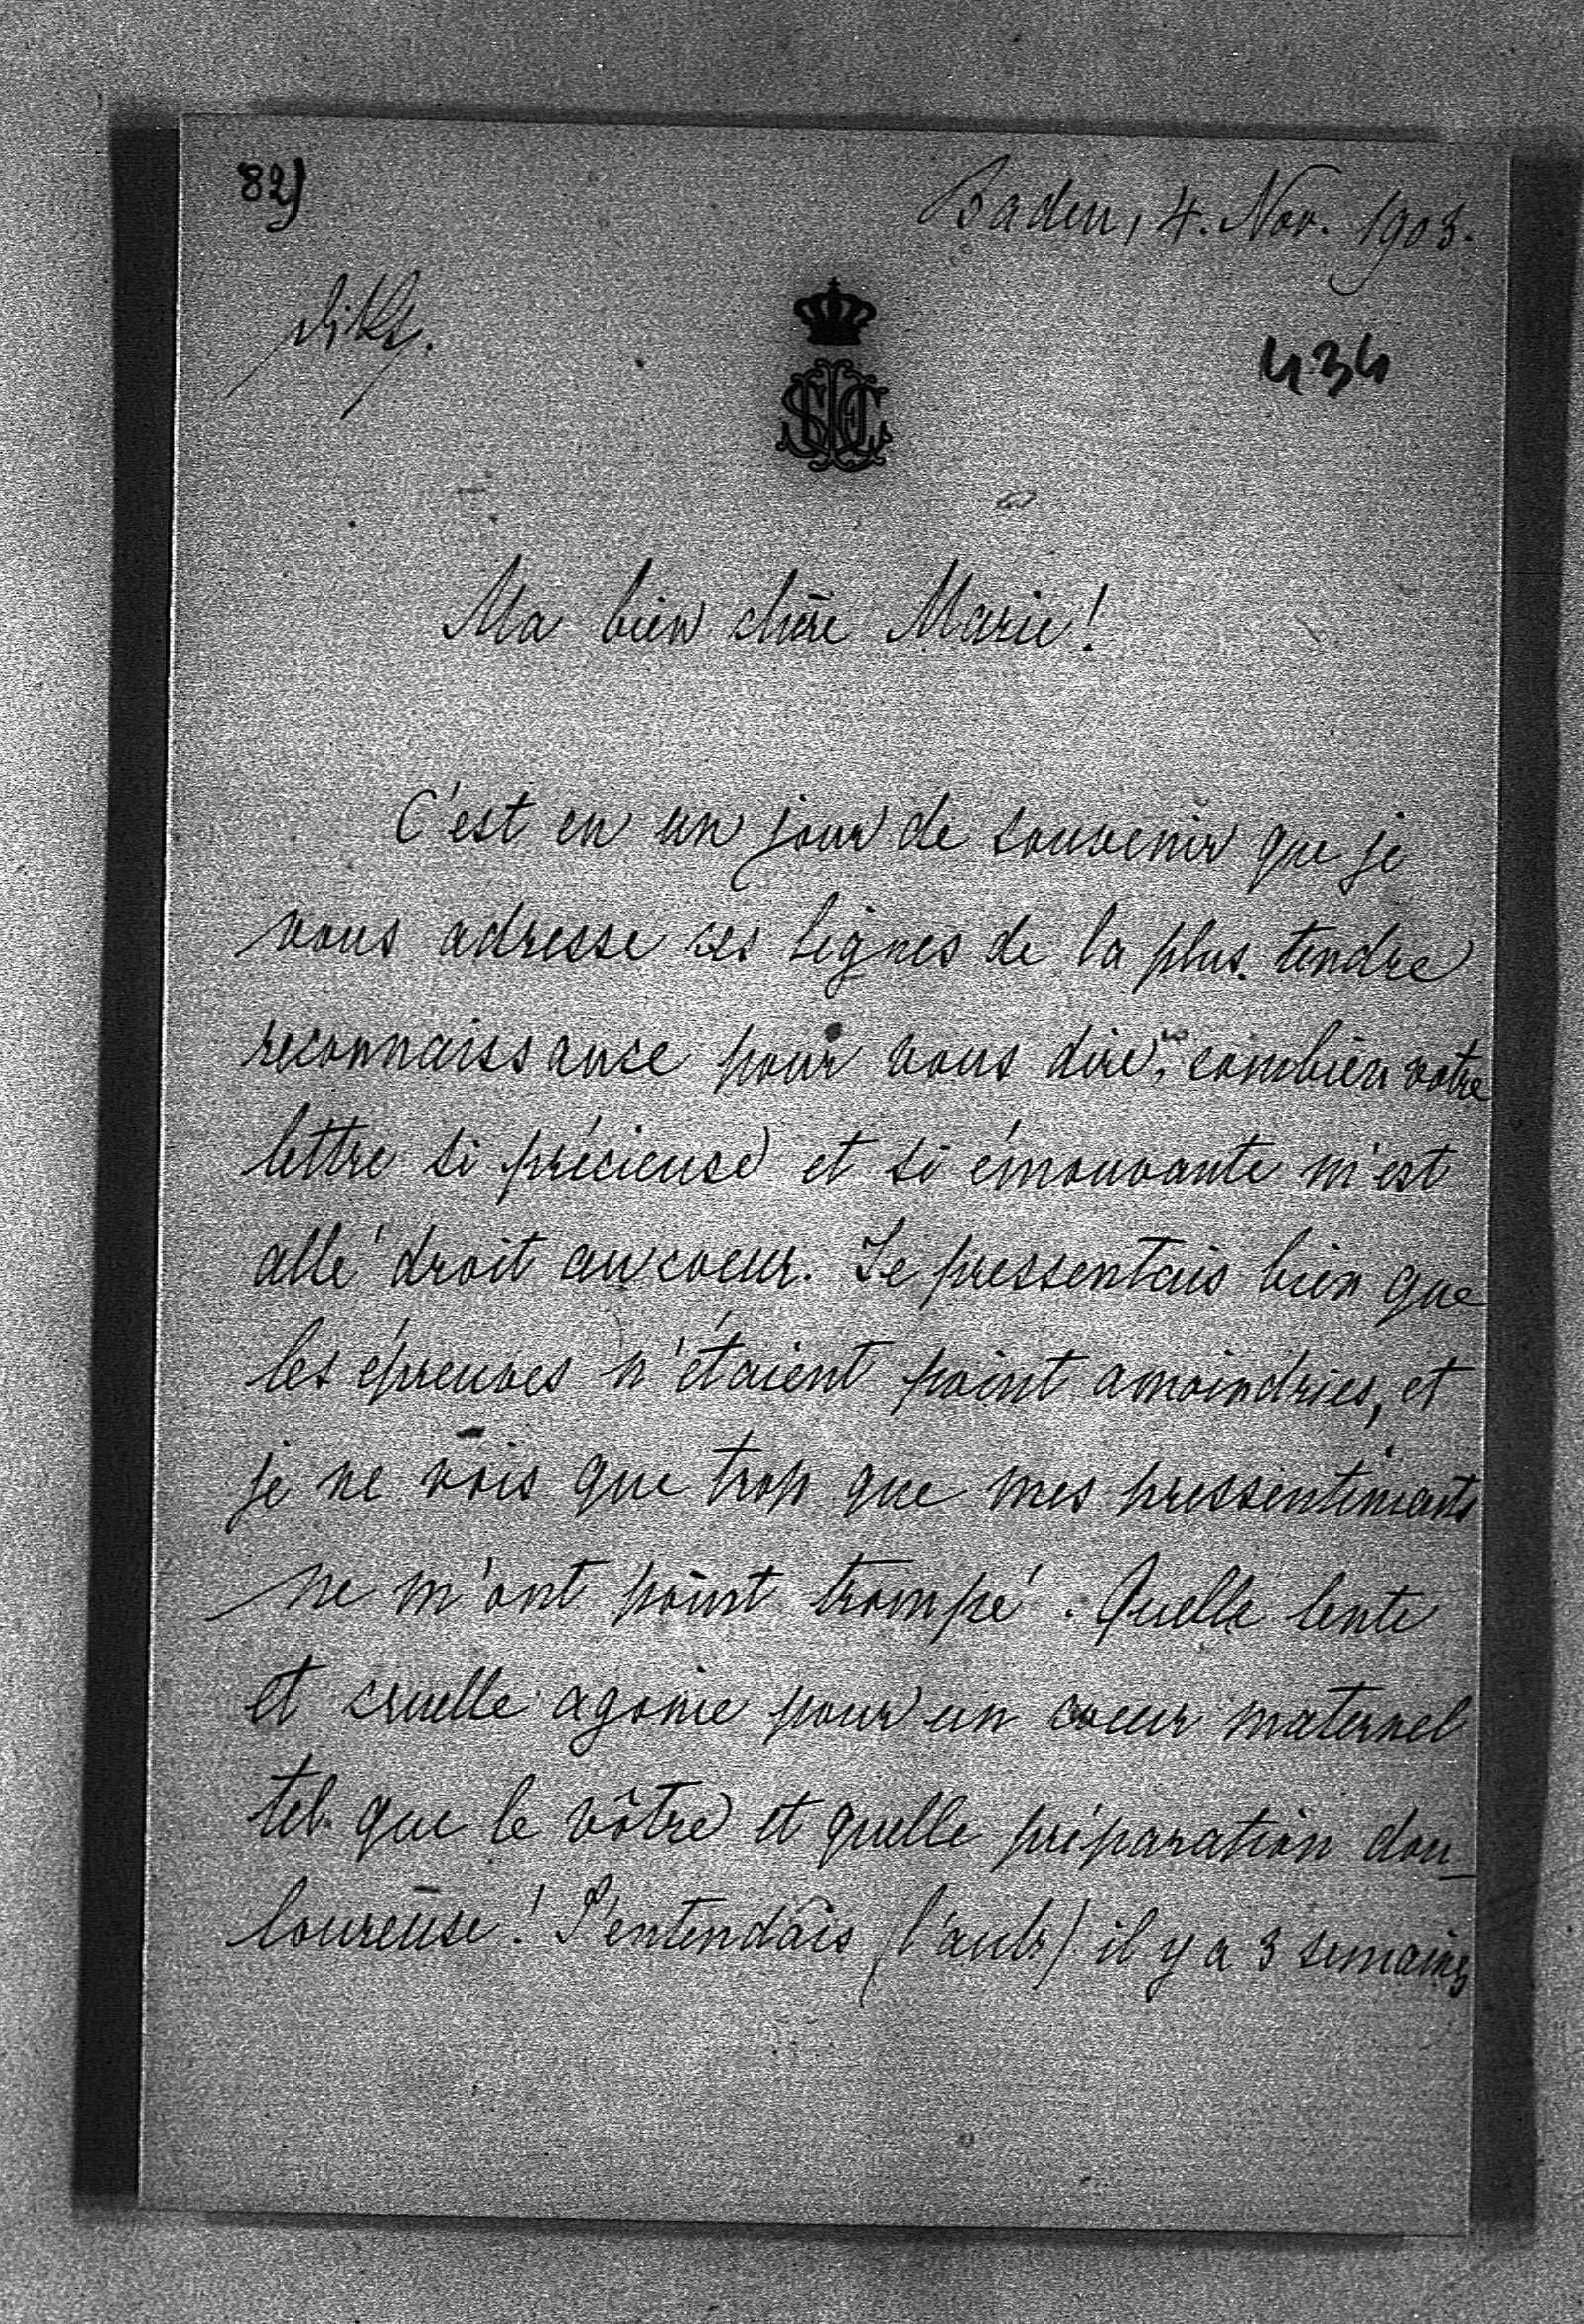 82)
Baden, 4. Nov. 1903.
434
Ma bien chère Marie!
C'est en un jour de souvenir que je
vous adresse ces lignes de la plus tendre
reconnaissance pour vous dire, combien votre
lettre si précieuse et si émouvante m'est
allé droit au coeur. Je pressentais bien que
les épreuves n'étaient point amoindries, et
je ne vois que trop que mes pressentiments
ne m'ont point trompé. Quelle lente
et cruelle agonie pour un coeur maternel
tel que le vôtre et quelle préparation dou-
loureuse! J'entendais il y a 3 semaines